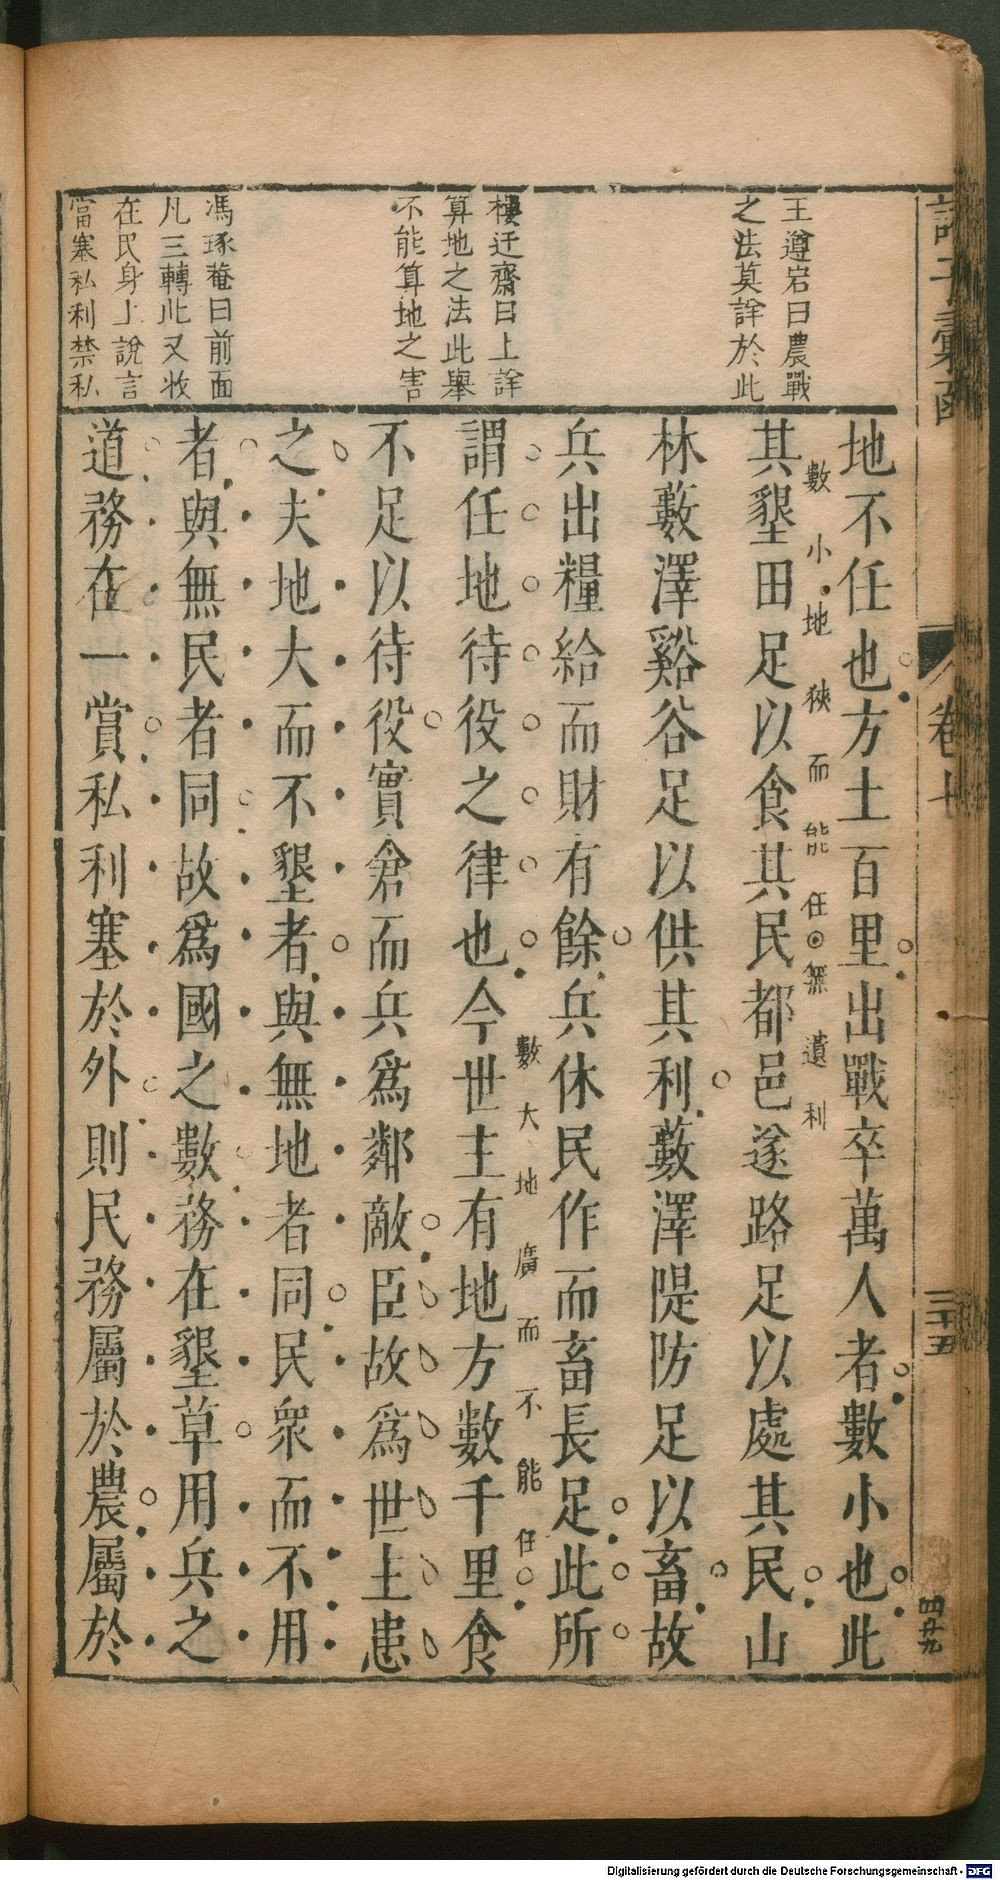 王遵岩曰農戰
之法莫詳於此
樓迂齋曰上詳
算地之法此舉
不能算地之害
馮琢菴曰前面
凡三轉此又收
在民身上說言
當塞私利禁私
地不任也方土百里出戰卒萬人者數小也此
數小地狹而能任無遺利
其墾田足以食其民都邑遂路足以處其民山
林藪澤谿谷足以供其利藪澤隄防足以畜故
兵出糧給而財有餘兵休民作而畜長足此所
數大地廣而不能任
謂任地待役之律也今世主有地方數千里食
不足以待役實倉而兵為鄰敵臣故為世主患
之夫地大而不墾者與無地者同民衆而不用
者與無民者同故為國之數務在墾草用兵之
道務在一賞私利塞於外則民務屬於農屬於
卷十
三十五
四廿九
Digitalisierung gefördert durch die Deutsche Forschungsgemeinschaft - DFG